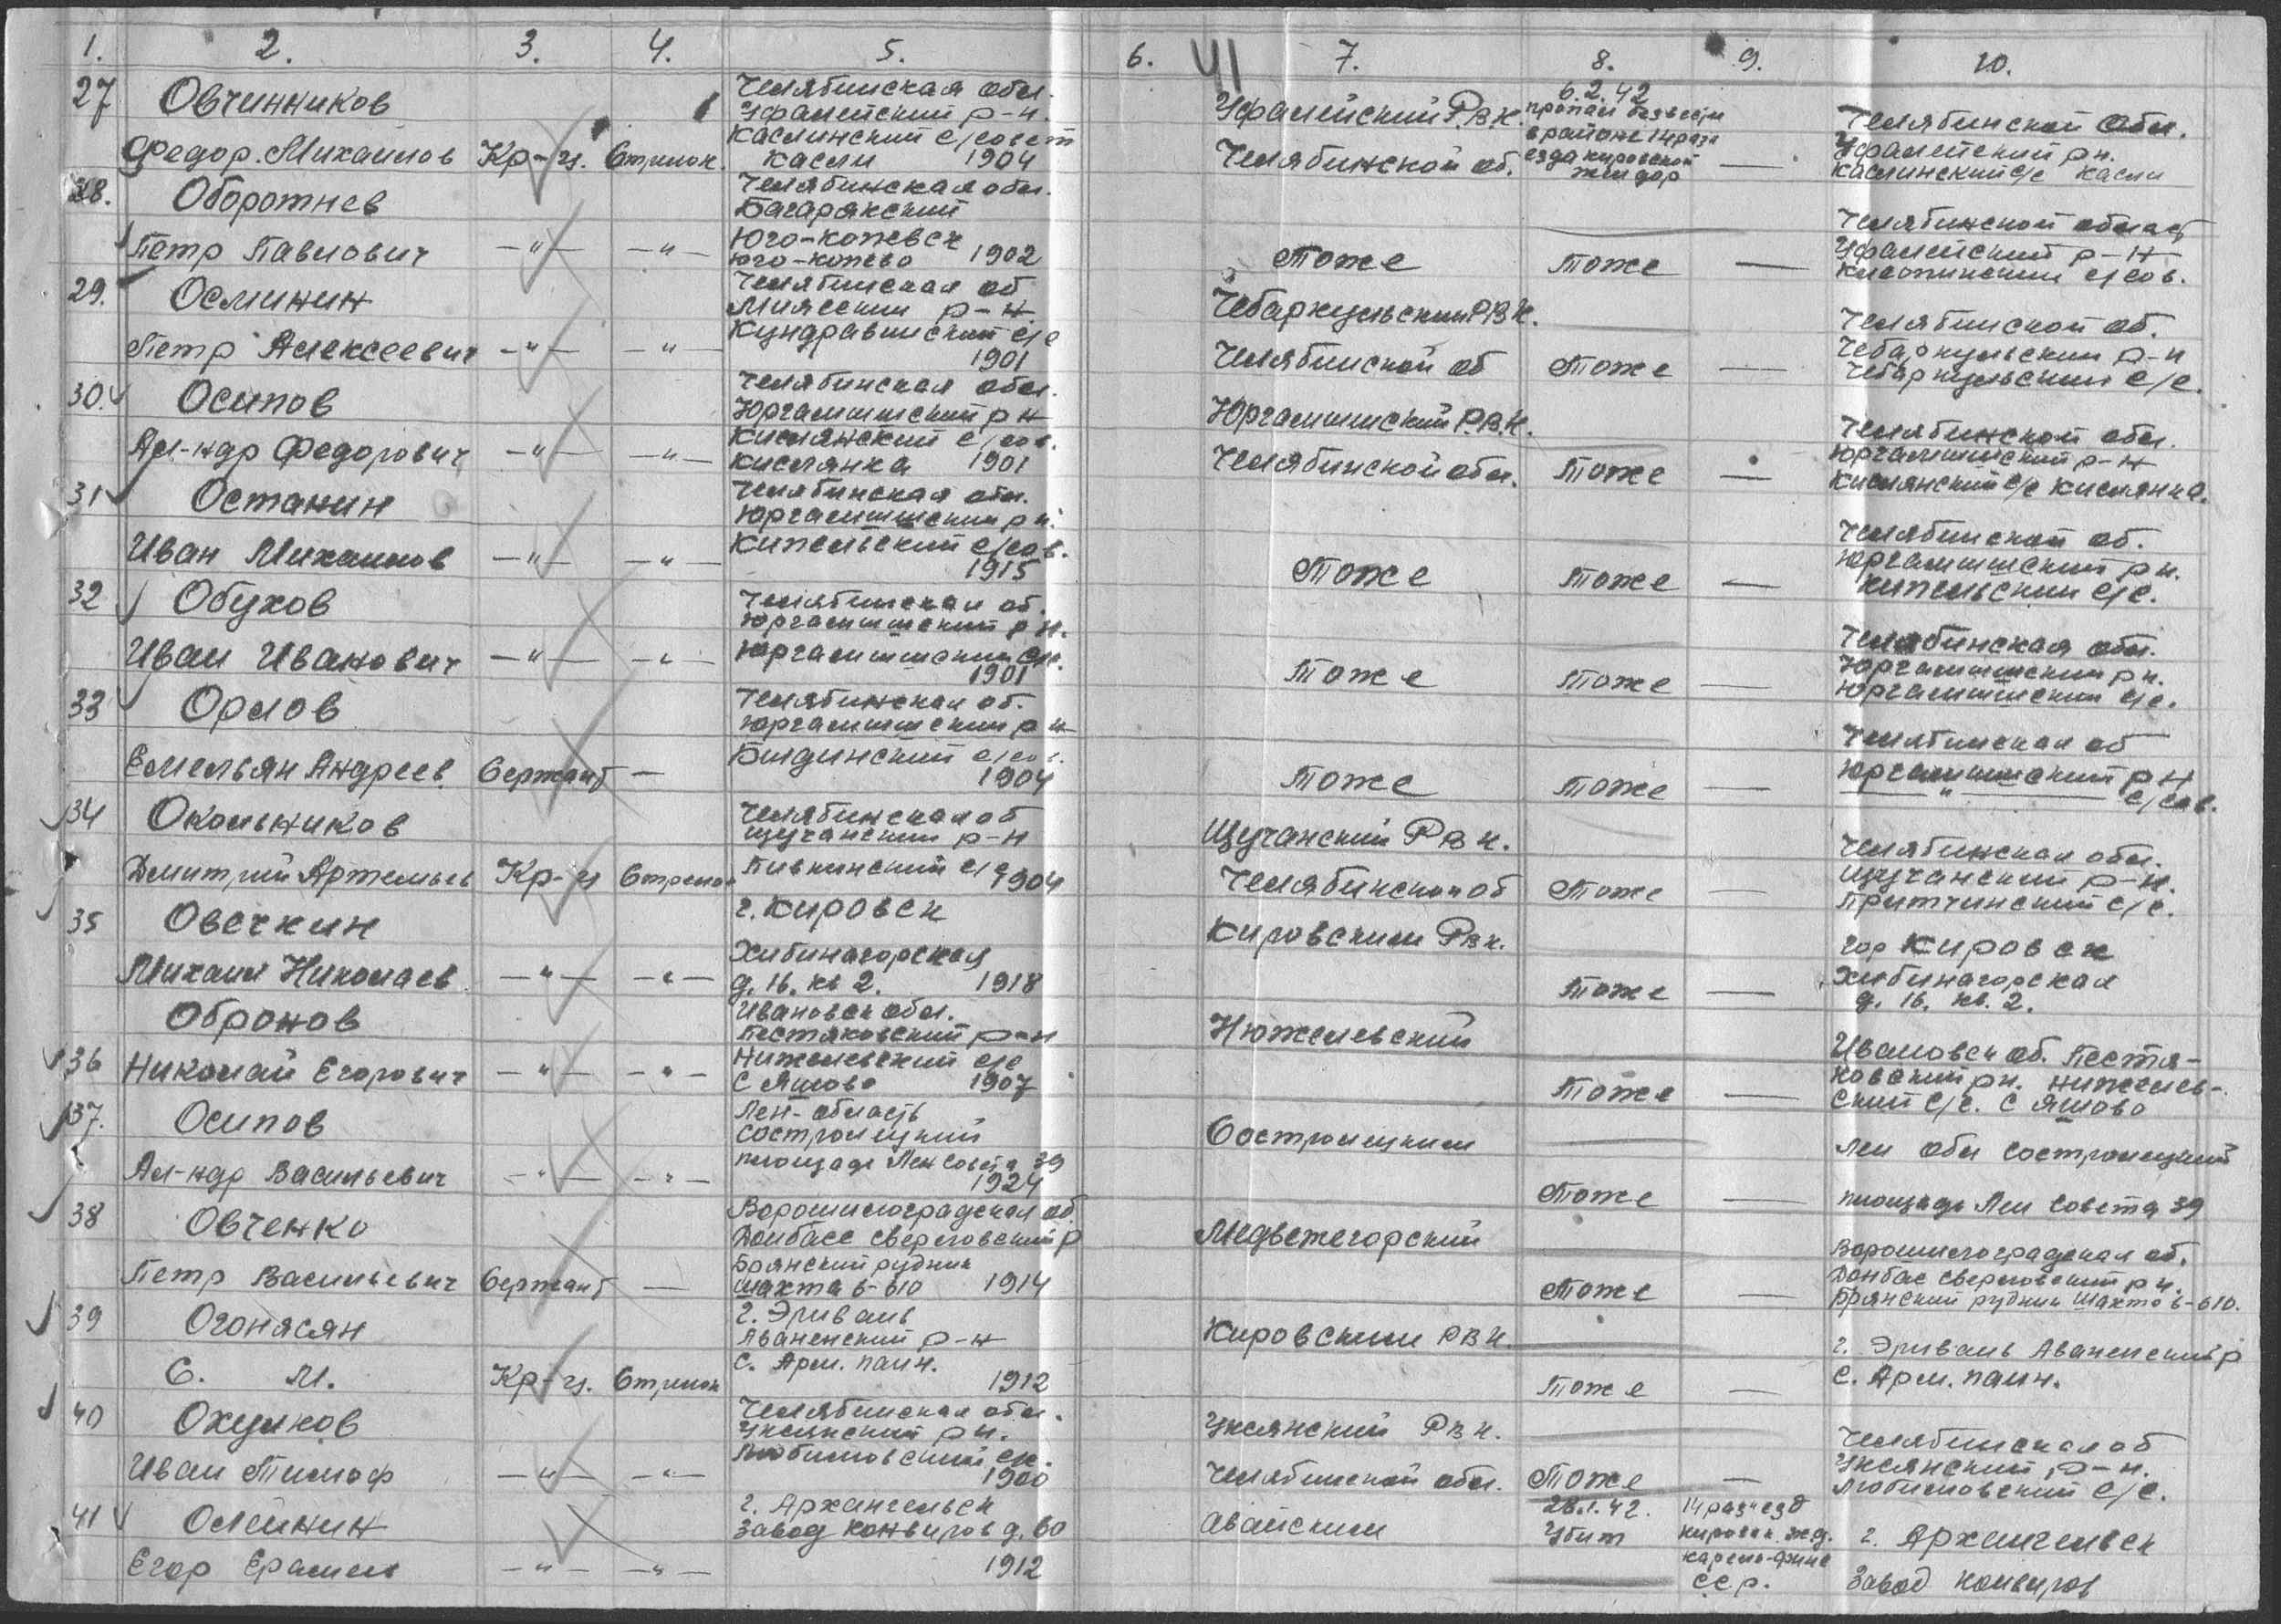 1. 2. 3. 4. 5. 6. 41 7. 8. 9. 10.
27 Овчинников
Федор. Михаилов Кр-ц. Стрелок.
Челябинская обл.
Уфалейский р-н.
Каслинский с/совет
Касли 1904
Уфалейский Р.В.К.
Челябинской об.
6.2.42
пропал без вести
в районе 14 разъ
езда кировской
жел дор
—
Челябинской обл.
Уфалейский рн.
Каслинский с/с Касли
28. Оборотнев
Петр Павлович —"— —"—
Челябинская обл.
Багарякский
Юго-коневск
юго-конево 1902
Тоже Тоже —
Челябинской област
Уфалейский р-н
с/сов.
29. Осминин
Петр Алексеевич —"— —"—
Челябинская об
Миясский р-н.
Кундравинский с/с
1901
Чебаркульский РВК.
Челябинской об Тоже —
Челябинской об.
Чебаркульский р-н
Чебаркульский с/с.
30. Осипов
Ал-ндр Федорович —"— —"—
Челябинская обл.
Юргамышский р н
Кислянский с/сов.
Кислянка 1901
Юргамышский Р.В.К.
Челябинской обл. Тоже —
Челябинской обл.
Юргамышский р-н
Кислянский с/с Кислянка.
31 Останин
Иван Михаилов —"— —"—
Челябинская обл.
Юргамышский рн.
Кипельский с/сов.
1915
Тоже Тоже —
Челябинской об.
Юргамышский рн.
Кипельский с/с.
32 Обухов
Иван Иванович —"— —"—
Челябинская об.
Юргамышский рн.
Юргамышский с/с.
1901
Тоже Тоже —
Челябинская обл.
Юргамышский рн.
Юргамышский с/с.
33 Орлов
Емельян Андреев. Сержант —
Челябинская об.
Юргамышский р н
с/сов.
1904
Тоже Тоже —
Челябинская об
Юргамышский р н
—"— с/сов.
34 Окольников
Дмитрий Артемьев Кр-ц Стрелок
Челябинская об
Щучанский р-н
Пивкинский с/с
1904
Щучанский РВК.
Челябинской об Тоже —
Челябинская обл.
Щучанский р-н.
Притчинский с/с.
35 Овечкин
Михаил Николаев —"— —"—
г. Кировск
Хибиногорская
д. 16. кв 2. 1918
Кировским Рвк.
Тоже —
гор Кировск
Хибиногорская
д. 16. кв. 2.
Обронов
36 Николай Егорович —"— —"—
Ивановск обл.
Пестяковский р-н
Нижелевский с/с
с Яшово 1907
Нюжелевский
Тоже —
Ивановск об. Пестя-
ковский рн. Нижелев-
ский с/с. с Яшово
37. Осипов
Ал-ндр Васильевич —"— —"—
Лен-область
Состролецкий
площадь Лен Совета 39
1924
Состролецким
Тоже —
Лен обл Состролецкий
площадь Лен Совета 39
38 Овченко
Петр Васильевич Сержант —
Ворошилоградская об.
Донбасс сверловский р
Брянский рудник
шахта 6-610 1914
Медвежегорский
Тоже —
Ворошилоградская об.
Донбас сверловский рн.
Брянский рудник шахта 6-610.
39 Огонясян
С. М. Кр-ц. Стрелок
г. Эривань
Аваненский р-н
с. Арм. паин.
1912
Кировским РВК.
Тоже —
г. Эривань Аваненский р
с. Арм. паин.
40 Охулков
Иван Тимоф —"— —"—
Челябинская обл.
Уксянский рн.
Любимовский с/с.
1900
Уксянский РВК.
Челябинской обл. Тоже —
Челябинская об
Уксянский р-н.
Любимовский с/с.
41 Олейнин
Егор —"— —"—
г. Архангельск
Завод конвиров д. 60
1912
28.1.42.
Убит
14 разъезд
кировск. жд.
карело-фине
с.с.р.
г. Архангельск
Завод конвиров